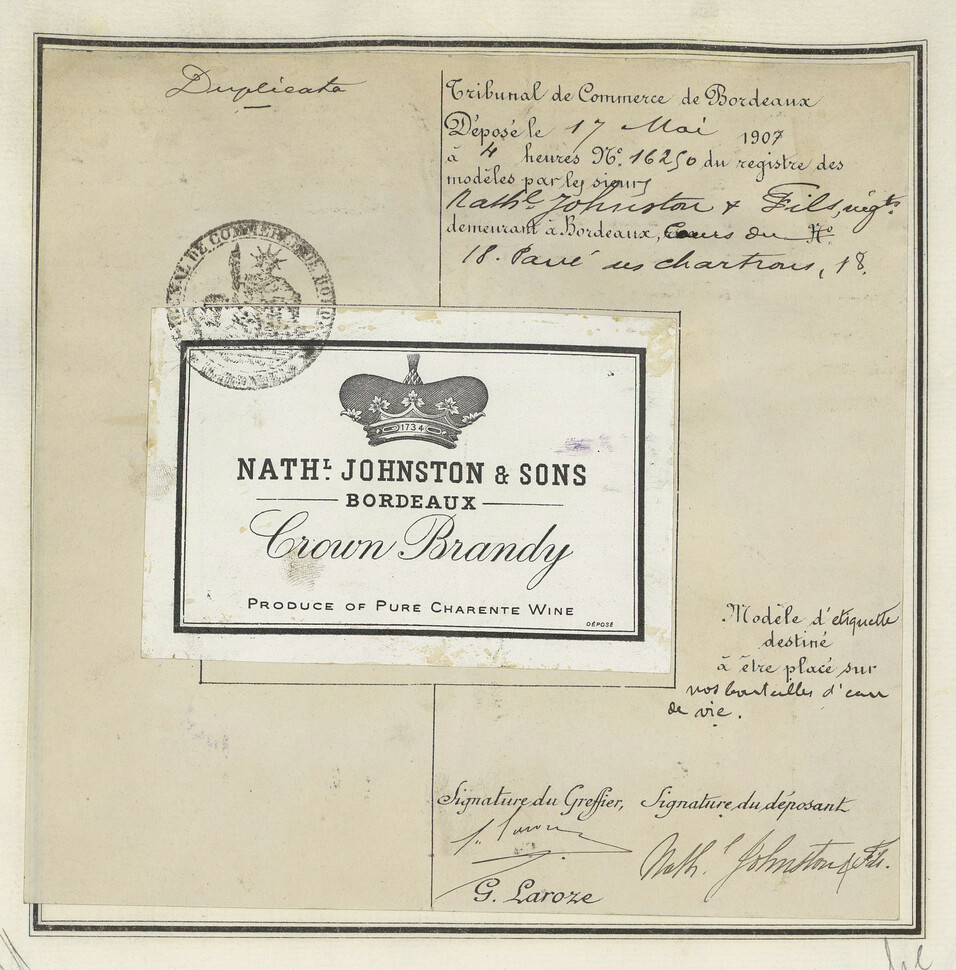 Duplicata
Tribunal de Commerce de Bordeaux
Déposé le 17 Mai 1907
à 4 heures N° 16250 du registre des
modèles par les sieurs
Nathl. Johnston & Fils, négts.
demeurant à Bordeaux, Cours du N°
18. Pavé des chartrons, 18.
TRIBUNAL DE COMMERCE DE BORDEAUX
1734
NATHL. JOHNSTON & SONS
BORDEAUX
Crown Brandy
PRODUCE OF PURE CHARENTE WINE
DÉPOSÉ
Modèle d'étiquette
destiné
à être placé sur
nos bouteilles d'eau
de vie.
Signature du Greffier, Signature du déposant
Nath. l Johnston & Fils.
G. Laroze